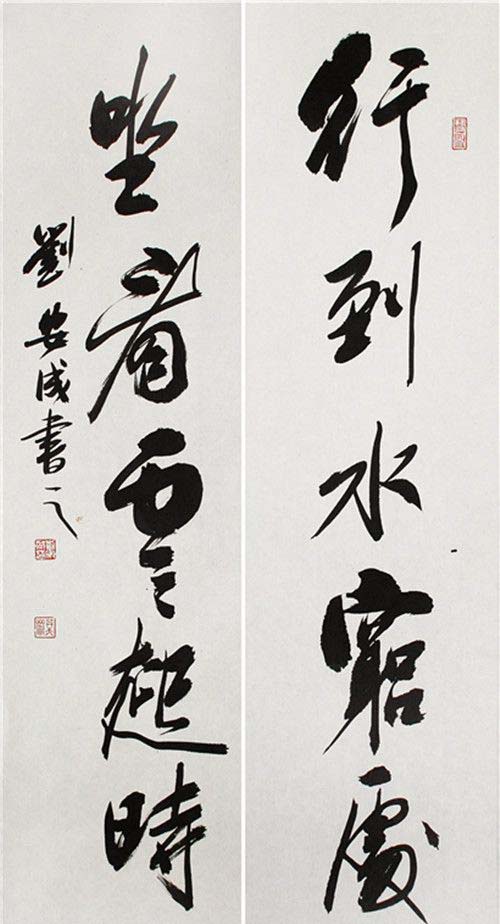 行到水窮處
坐看雲起時
劉安成書之